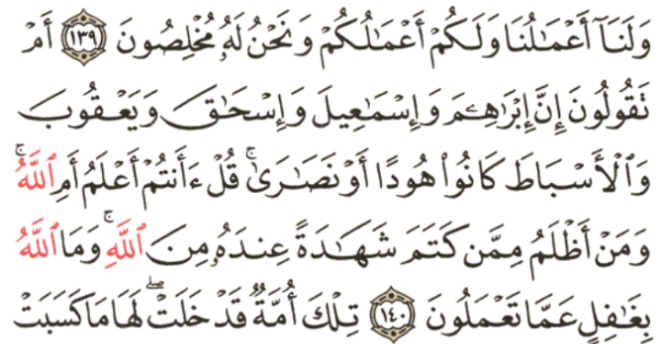 وَلَنَآ أَعۡمَٰلُنَا وَلَكُمۡ أَعۡمَٰلُكُمۡ وَنَحۡنُ لَهُۥ مُخۡلِصُونَ ١٣٩ أَمۡ
تَقُولُونَ إِنَّ إِبۡرَٰهِـۧمَ وَإِسۡمَٰعِيلَ وَإِسۡحَٰقَ وَيَعۡقُوبَ
وَٱلۡأَسۡبَاطَ كَانُواْ هُودًا أَوۡ نَصَٰرَىٰۗ قُلۡ ءَأَنتُمۡ أَعۡلَمُ أَمِ ٱللَّهُۗ
وَمَنۡ أَظۡلَمُ مِمَّن كَتَمَ شَهَٰدَةً عِندَهُۥ مِنَ ٱللَّهِۗ وَمَا ٱللَّهُ
بِغَٰفِلٍ عَمَّا تَعۡمَلُونَ ١٤٠ تِلۡكَ أُمَّةٞ قَدۡ خَلَتۡۖ لَهَا مَا كَسَبَتۡ